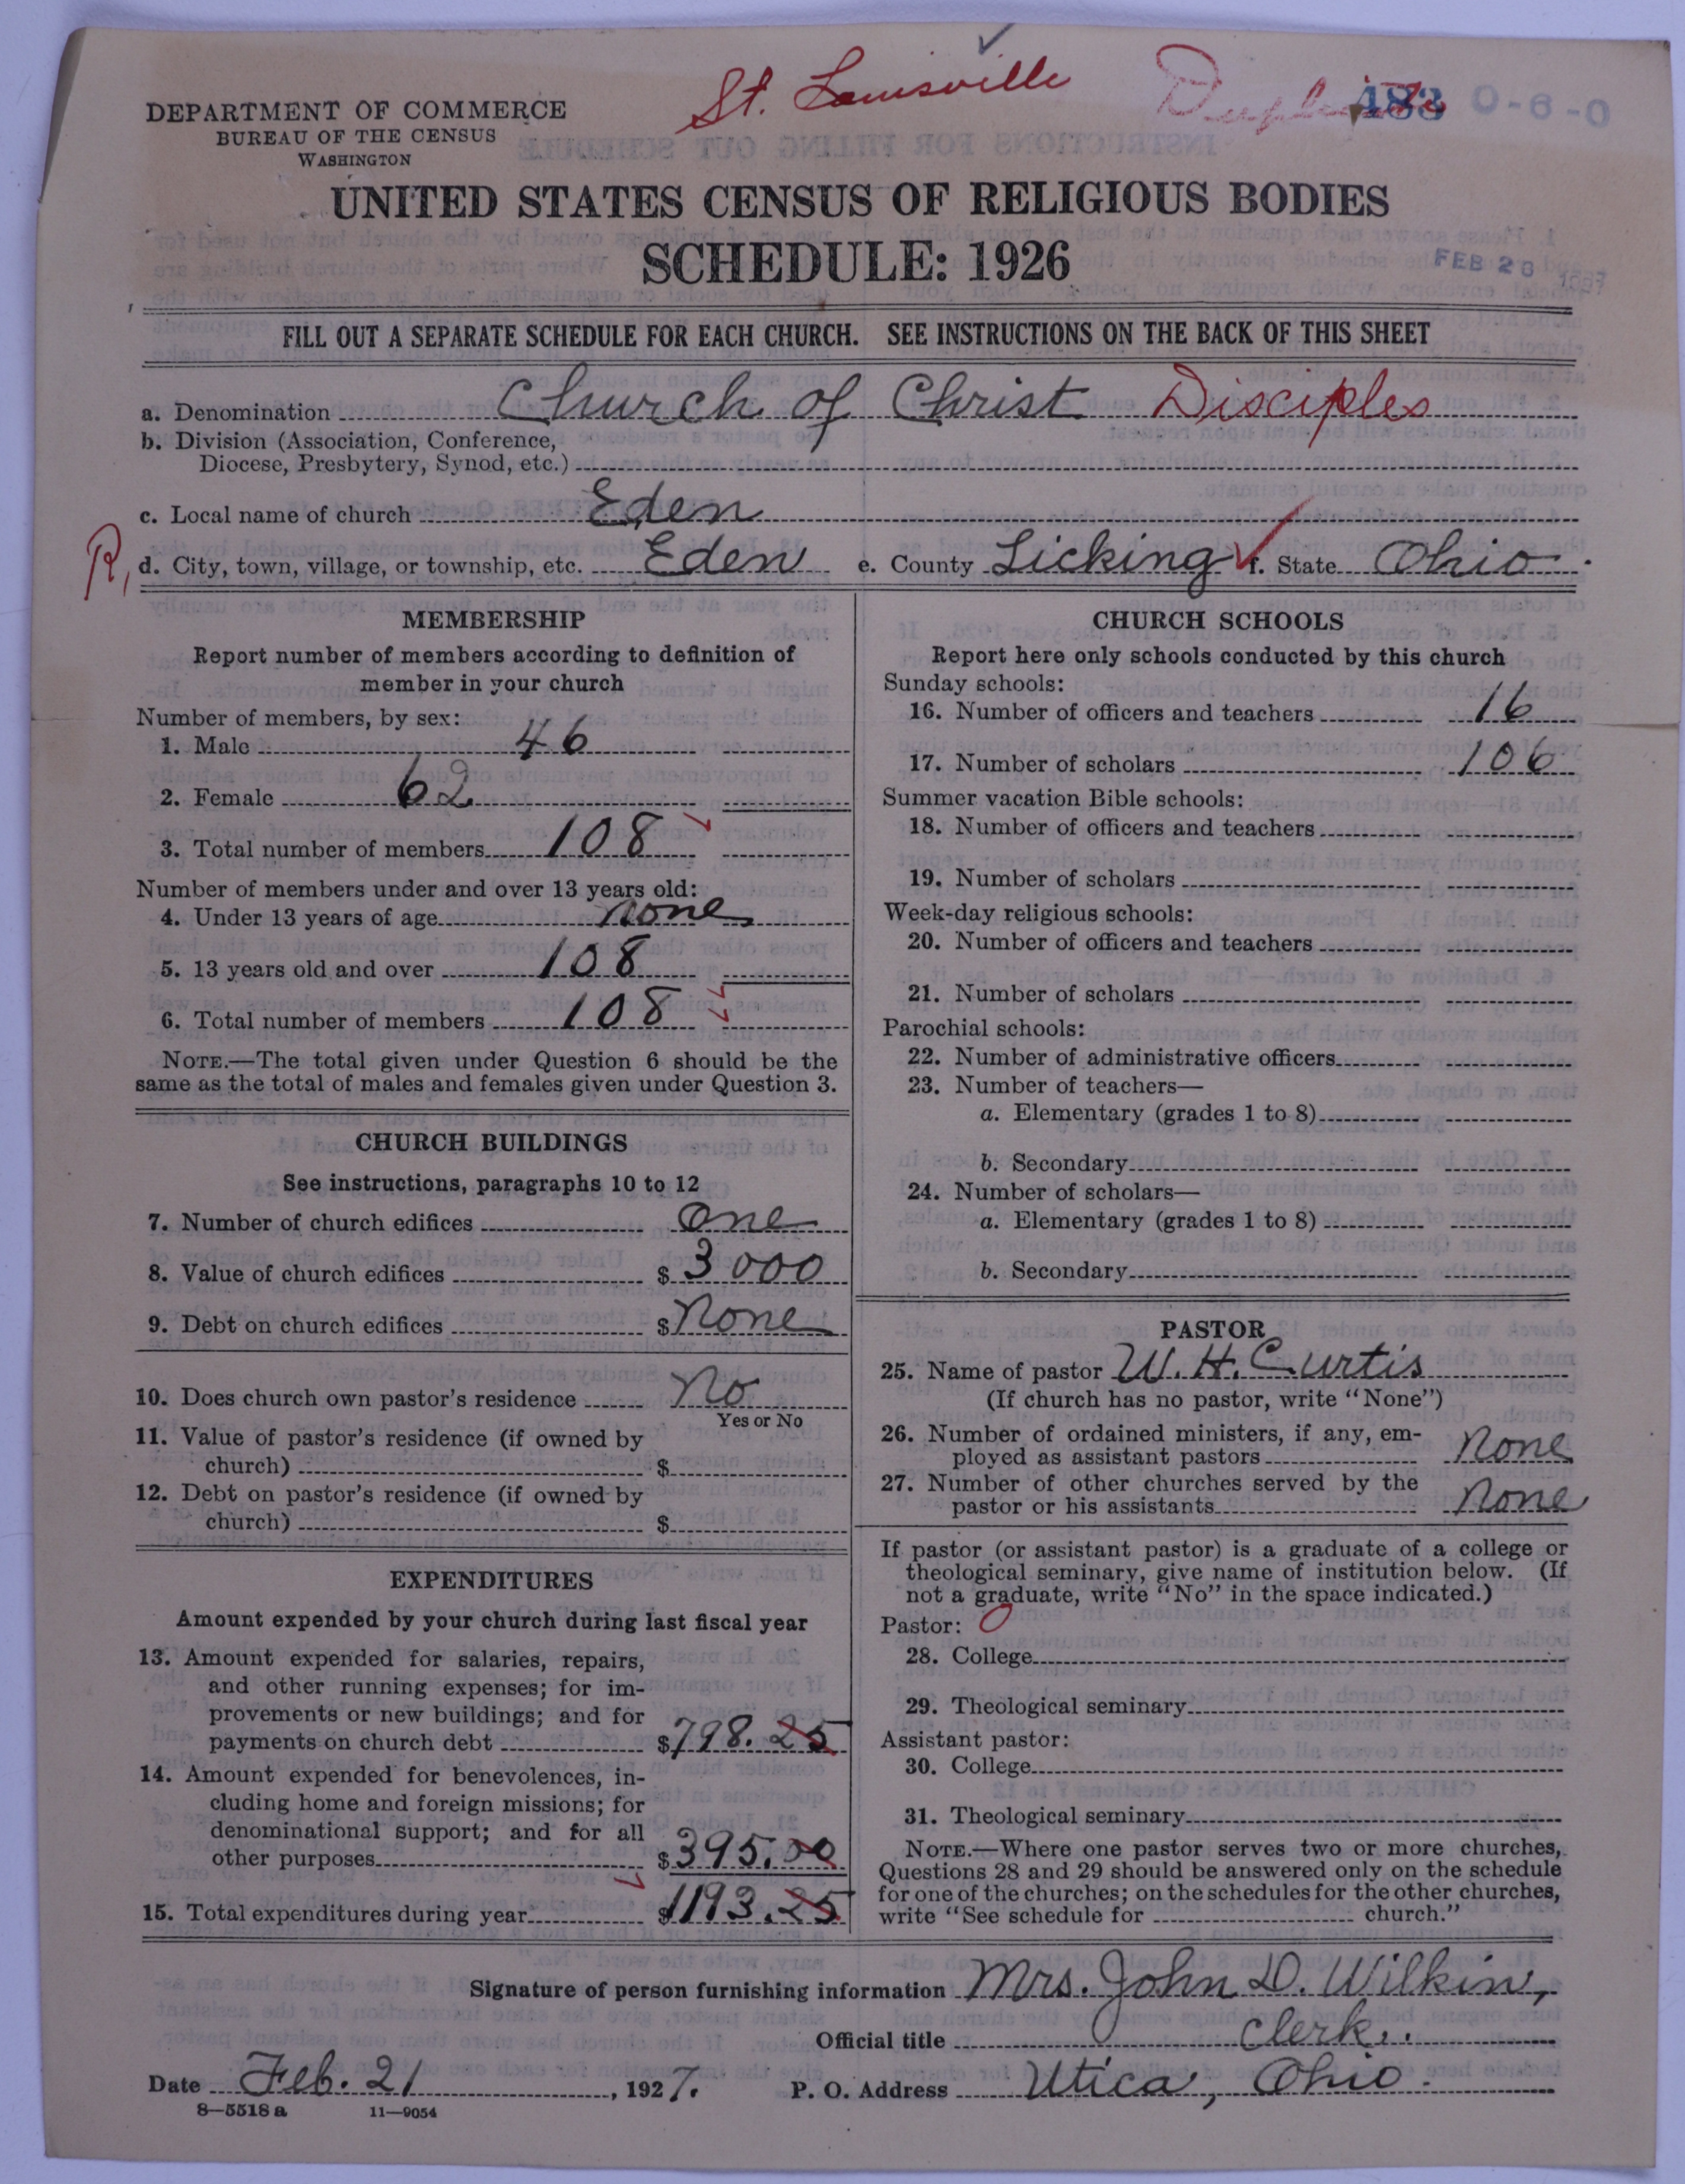 St. Louisville
183 0-6-0
DEPARTMENT OF COMMERCE
BUREAU OF THE CENSUS
WASHINGTON
UNITED STATES CENSUS OF RELIGIOUS BODIES
SCHEDULE: 1926
FEB 28 1927
FILL OUT A SEPARATE SCHEDULE FOR EACH CHURCH. SEE INSTRUCTIONS ON THE BACK OF THIS SHEET
a. Denomination Church of Christ Disciples
b. Division (Association, Conference,
Diocese, Presbytery, Synod, etc.)
c. Local name of church Eden
R, d. City, town, village, or township, etc. Eden e. County Licking f. State Ohio
MEMBERSHIP
Report number of members according to definition of
member in your church
Number of members, by sex:
1. Male 46
2. Female 62
3. Total number of members 108
Number of members under and over 13 years old:
4. Under 13 years of age none
5. 13 years old and over 108
6. Total number of members 108
NOTE.—The total given under Question 6 should be the
same as the total of males and females given under Question 3.
CHURCH BUILDINGS
See instructions, paragraphs 10 to 12
7. Number of church edifices one
8. Value of church edifices $ 3000
9. Debt on church edifices $ None
10. Does church own pastor's residence No
Yes or No
11. Value of pastor's residence (if owned by
church) $
12. Debt on pastor's residence (if owned by
church) $
EXPENDITURES
Amount expended by your church during last fiscal year
13. Amount expended for salaries, repairs,
and other running expenses; for im-
provements or new buildings; and for
payments on church debt $ 798.25
14. Amount expended for benevolences, in-
cluding home and foreign missions; for
denominational support; and for all
other purposes $ 395.00
15. Total expenditures during year $ 1193.25
CHURCH SCHOOLS
Report here only schools conducted by this church
Sunday schools:
16. Number of officers and teachers 16
17. Number of scholars 106
Summer vacation Bible schools:
18. Number of officers and teachers
19. Number of scholars
Week-day religious schools:
20. Number of officers and teachers
21. Number of scholars
Parochial schools:
22. Number of administrative officers
23. Number of teachers—
a. Elementary (grades 1 to 8)
b. Secondary
24. Number of scholars—
a. Elementary (grades 1 to 8)
b. Secondary
PASTOR
25. Name of pastor W. H. Curtis
(If church has no pastor, write "None")
26. Number of ordained ministers, if any, em-
ployed as assistant pastors None
27. Number of other churches served by the
pastor or his assistants None
If pastor (or assistant pastor) is a graduate of a college or
theological seminary, give name of institution below. (If
not a graduate, write "No" in the space indicated.)
Pastor: O
28. College
29. Theological seminary
Assistant pastor:
30. College
31. Theological seminary
NOTE.—Where one pastor serves two or more churches,
Questions 28 and 29 should be answered only on the schedule
for one of the churches; on the schedules for the other churches,
write "See schedule for church."
Signature of person furnishing information Mrs. John D. Wilkin,
Official title Clerk.
Date Feb. 21, 1927. P. O. Address Utica, Ohio.
8—5518 a 11—9054